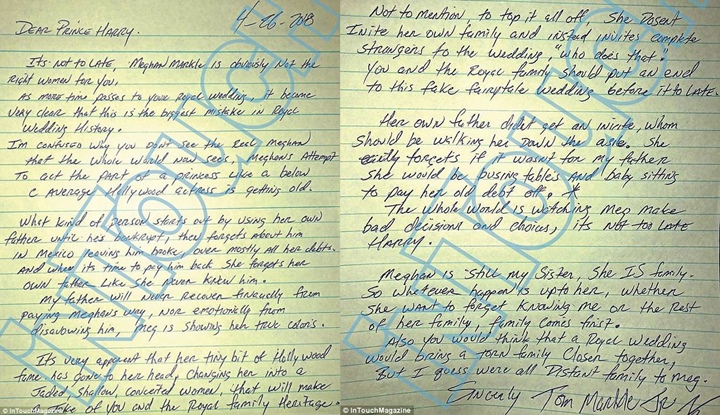 4-26-2018
DEAR PRINCE HARRY.
It's not to LATE, Meghan Markle is obviously Not the
Right women for you,
As more time passes to your Royal wedding, it became
very clear that this is the biggest mistake in Royal
Wedding History.
I'm confused why you dont see the real meghan
that the whole world now sees. Meghan's Attempt
To act the part of a princess Like a below
C Average Hollywood actress is getting old.
What kind of person starts out by using her own
father until he's bankrupt, then forgets about him
in Mexico leaving him broke, over mostly all her debts.
And when its time to pay him back She forgets her
own father Like She never knew him.
My father will never recover financially from
paying meghan's way, Nor emotionally from
disavowing him, meg is Showing her true colors.
It's very apparent that her tiny bit of Hollywood
fame has gone to her head, changing her into a
Jaded, Shallow, conceited women, that will make
of you and the Royal family Heritage.
© InTouchMagazine
Not to mention, to top it all off, She Dosent
Invite her own family and instead invites complete
Strangers to the Wedding, "who does that."
You and the Royal family should put an end
to this fake fairytale wedding before it to LATE.
Her own father didn't get an invite, whom
should be walking her Down the aisle, She
forgets if it wasn't for my father
She would be busing tables and baby sitting
to pay her old debt off.
The whole world is watching meg make
bad decisions and choices, its not too LATE
HARRY.
Meghan is still my Sister, She IS family.
So whatever happen is up to her, whether
She want to forget knowing me or the Rest
of her family, family comes first.
Also you would think that a Royal wedding
would bring a torn family Closer together,
But I guess were all Distant family to meg.
Sincerly Tom Markle Jr
© InTouchMagazine
INTOUCH
INTOUCH